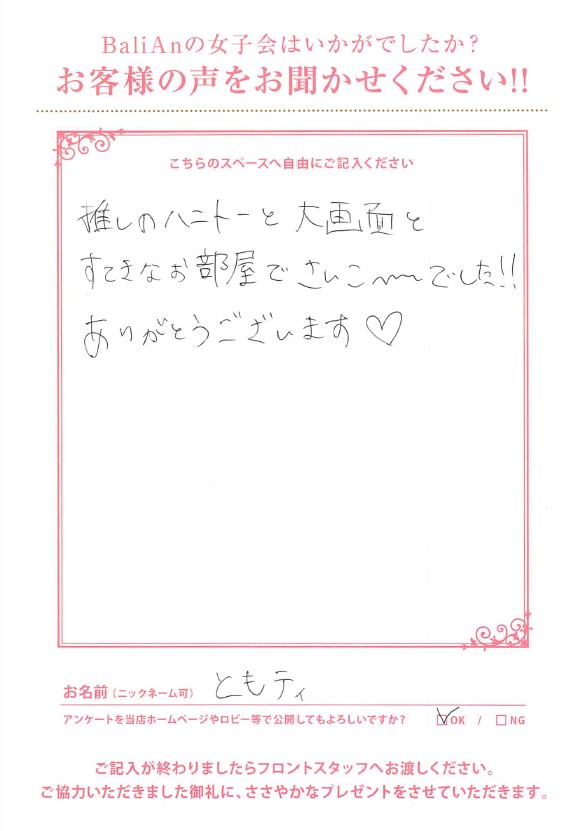 BaliAnの女子会はいかがでしたか?
お客様の声をお聞かせください!!
こちらのスペースへ自由にご記入ください
推しのハニトーと大画面と
すてきなお部屋でさいこ〜〜でした!!
ありがとうございます♡
お名前(ニックネーム可) ともティ
アンケートを当店ホームページやロビー等で公開してもよろしいですか? ☑OK / □NG
ご記入が終わりましたらフロントスタッフへお渡しください。
ご協力いただきました御礼に、ささやかなプレゼントをさせていただきます。